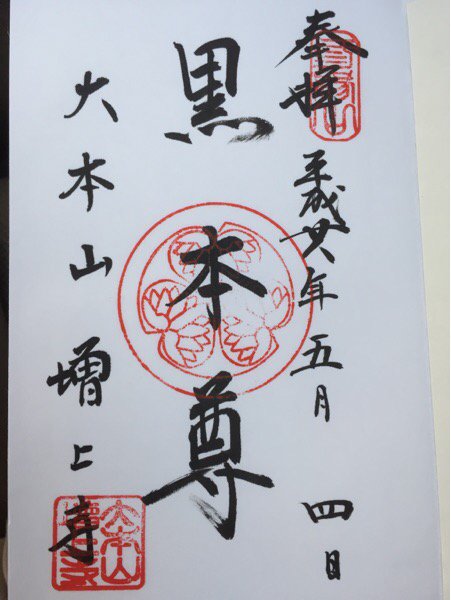 奉拝
平成廿八年五月四日
黒本尊
大本山増上寺
三縁山
大本山
増上寺